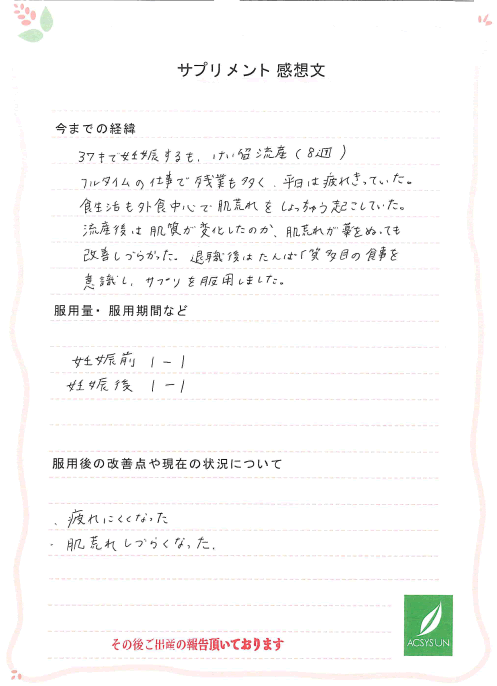 サプリメント 感想文
今までの経緯
37才で妊娠するも、けい留流産(8週)
フルタイムの仕事で残業も多く、平日は疲れきっていた。
食生活も外食中心で肌荒れをしょっちゅう起こしていた。
流産後は肌質が変化したのか、肌荒れが薬をぬっても
改善しづらかった。退職後はたんぱく質多目の食事を
意識し、サプリを服用しました。
服用量・服用期間など
妊娠前 1-1
妊娠後 1-1
服用後の改善点や現在の状況について
・疲れにくくなった
・肌荒れしづらくなった。
その後ご出産の報告頂いております
ACSYSUN